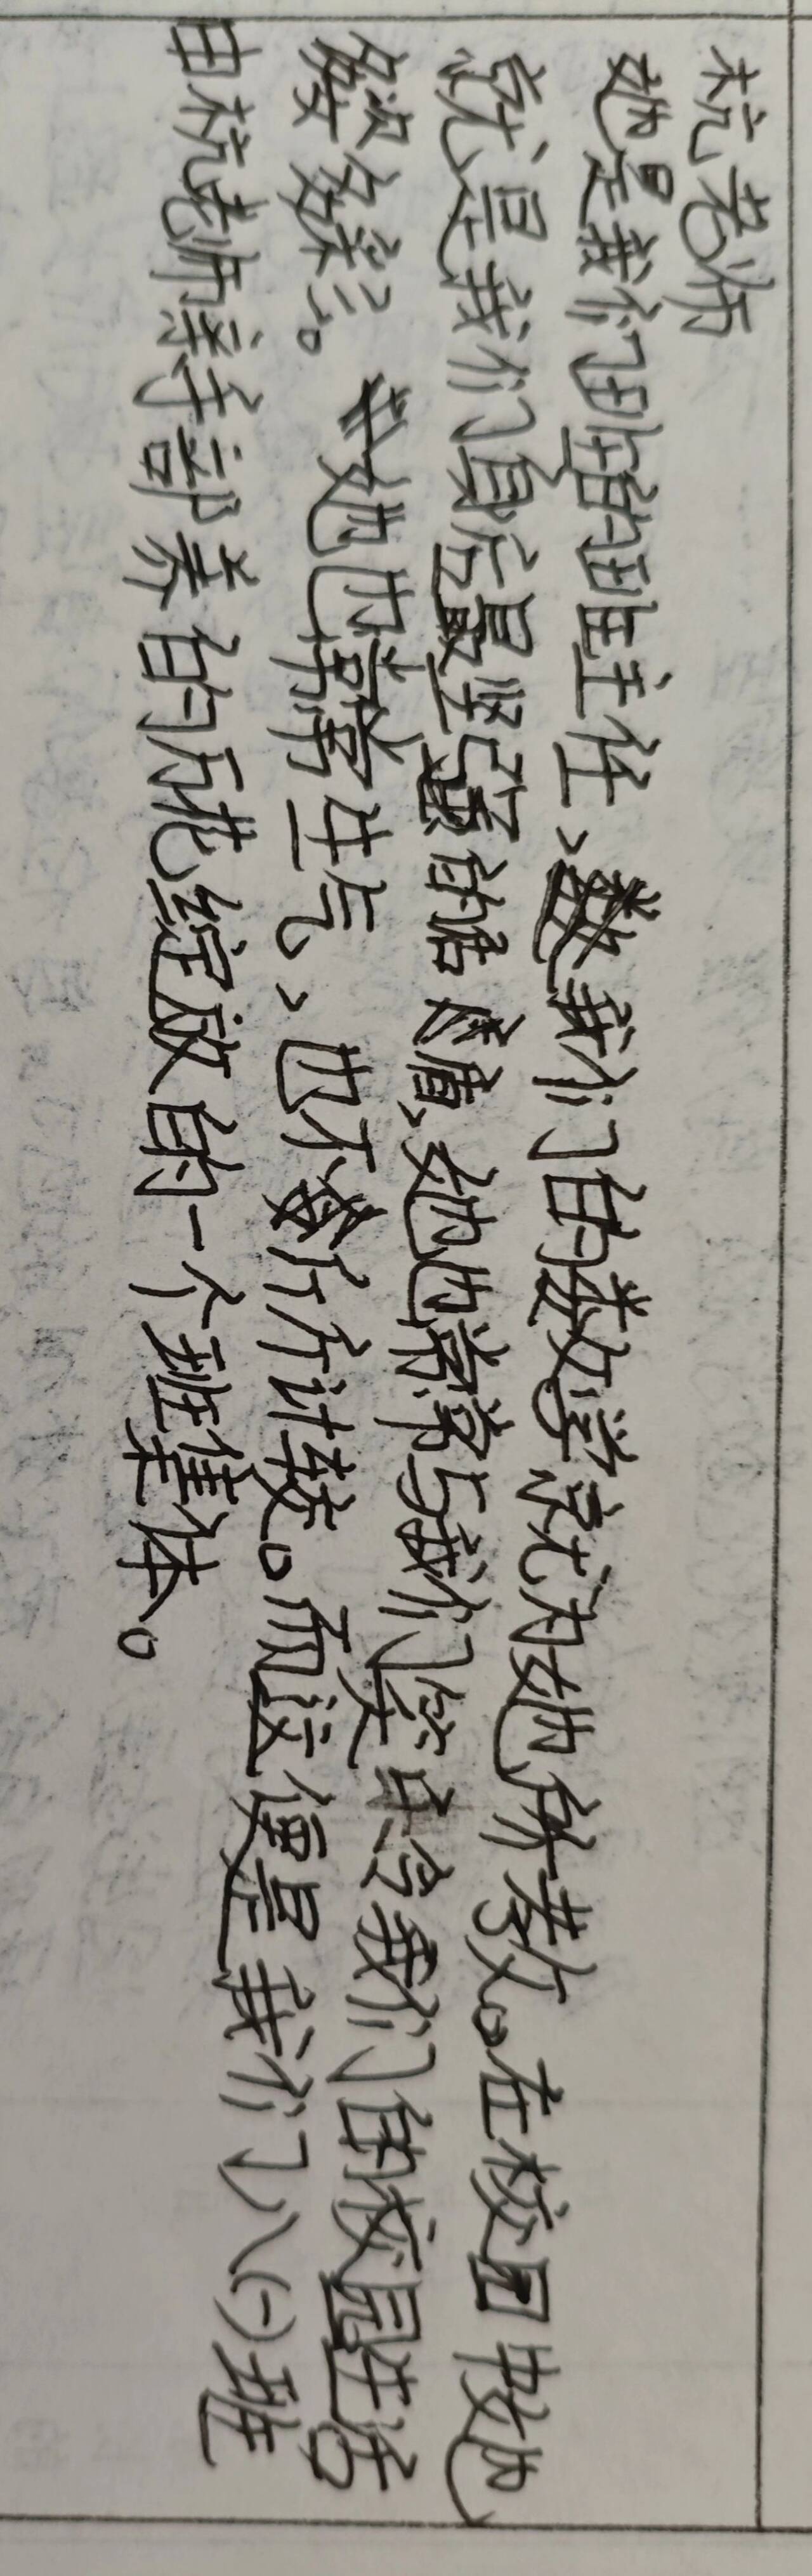 杭老师
她是我们班的班主任、我们的数学就为她所教。在校园中她
就是我们身后最坚强的后盾,她也常常与我们笑,令我们的校园生活
缤纷多彩。她也常常生气、也不斤斤计较。而这便是我们八(一)班
由杭老师亲手部养的万花绽放的一个班集体。